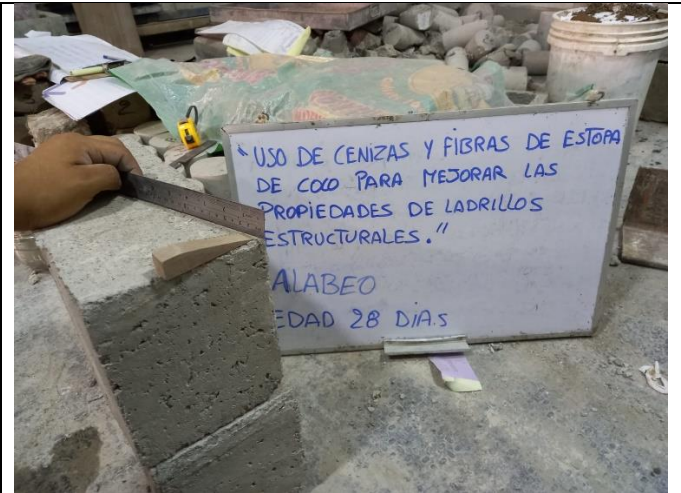 "USO DE CENIZAS Y FIBRAS DE ESTOPA
DE COCO PARA MEJORAR LAS
PROPIEDADES DE LADRILLOS
ESTRUCTURALES."
ALABEO
EDAD 28 DIAS